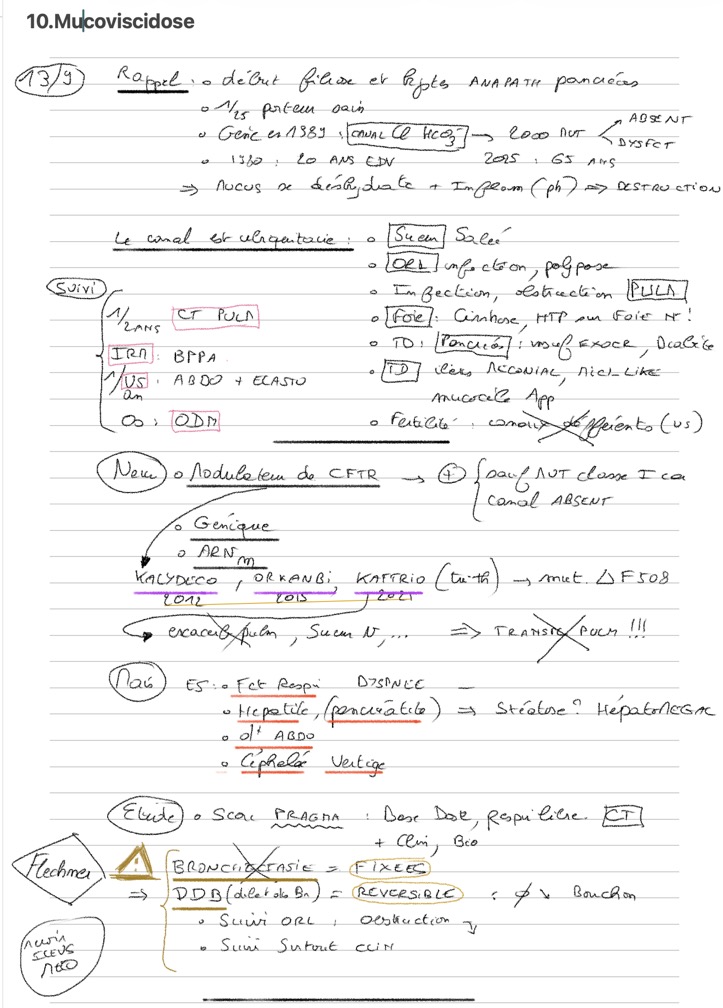 10.Mucoviscidose
13/9
Rappel : o début fibrose et kystes ANAPATH pancréas
o 1/25 porteur sain
o Gène en 1989 : CANAL Cl HCO3- → 2000 MUT
ABSENT
DYSFCT
o 1980 : 20 ANS EDV 2025 : 65 ANS
⇒ Mucus se déshydrate + Inflam (ph) ⇒ DESTRUCTION
Le canal est ubiquitaire : o Sueur Salée
o ORL infection, polypose
o Infection, obstruction PULM
o Foie : Cirrhose, HTP sur Foie N !
o TD : Pancréas : insuf EXOCR, Diabète
o TD iléus MECONIAL, MICI-LIKE
mucocèle App
o Fertilité : canaux déférents (US)
Suivi
1/2ANS CT PULM
IRM : BPPA
1/an US : ABDO + ELASTO
Os : ODM
New o Modulateur de CFTR → + sauf MUT classe I car
canal ABSENT
o Génique
o ARN m
KALYDECO, ORKAMBI, KAFTRIO (trith) → mut. Δ F508
2012 2015 2021
exacerb pulm, Sueur N, ... ⇒ TRANSPL PULM !!!
Mais ES : o Fct Respi DYSPNEE
o Hépatite, (pancréatite) ⇒ Stéatose ? HépatoMEGAL
o dlr ABDO
o Céphalée Vertige
Etude o Score PRAGMA : Base Dose, Respi libre. CT
+ Clin, Bio
Flechner
BRONCHIECTASIE = FIXEES
⇒ DDB (dilat des Bn) = REVERSIBLE : ∅ ↘ Bouchon
o Suivi ORL : Obstruction ↘
o Suivi Surtout CLIN
ILEUS